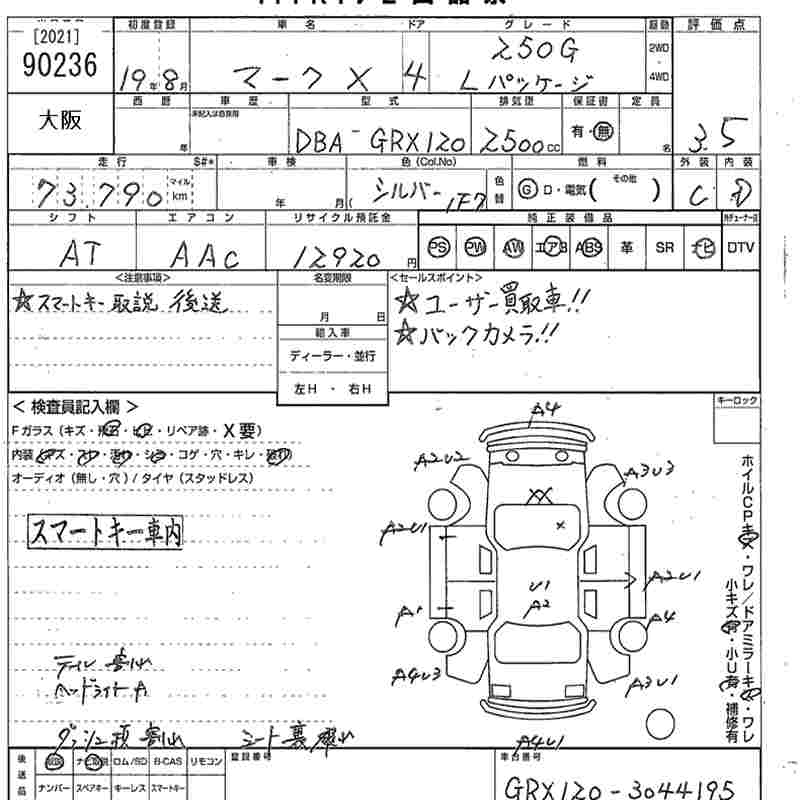 [2021]
90236
大阪
初度登録 車名 ドア グレード 駆動 評価点
19年8月 マークX 4 250G Lパッケージ 2WD・4WD 3.5
西暦 車歴 型式 排気量 保証書 定員
年 未記入は自家用 DBA-GRX120 2500cc 有・無 名
走行 S#* 車検 色(Col.No) 色替 燃料 外装 内装
73,790 マイル km 年 月( シルバー 1F7 G D・電気( その他 ) C D
シフト エアコン リサイクル預託金 純正装備品
AT AAC 12920円 PS PW AW エアB ABS 革 SR ナビ DTV
<注意事項> 名変期限 <セールスポイント>
☆スマートキー取説後送
月 日
☆ユーザー買取車!!
☆バックカメラ!!
輸入車
ディーラー・並行
左H・右H
<検査員記入欄>
キーロック
Fガラス(キズ・飛石・ヒビ・リペア跡・X要)
内装(キズ・スレ・汚れ・シミ・コゲ・穴・キレ・破れ)
オーディオ(無し・穴)/タイヤ(スタッドレス)
スマートキー車内
A4
A2U2 A3U3
XX
X
A2U1 A2U1
U1
A2
A1 A4
A4U3 A3U1
A4U1
ホイルCPキズ・ワレ/ドアミラーキズ・ワレ
小キズ有・小U有・補修有
テール割山
ヘッドライトA
シート裏
後送品 ナビ取説 ロム/SD B-CAS リモコン
ナンバー スペアキー キーレス スマートキー
登録番号
車台番号
GRX120-3044195